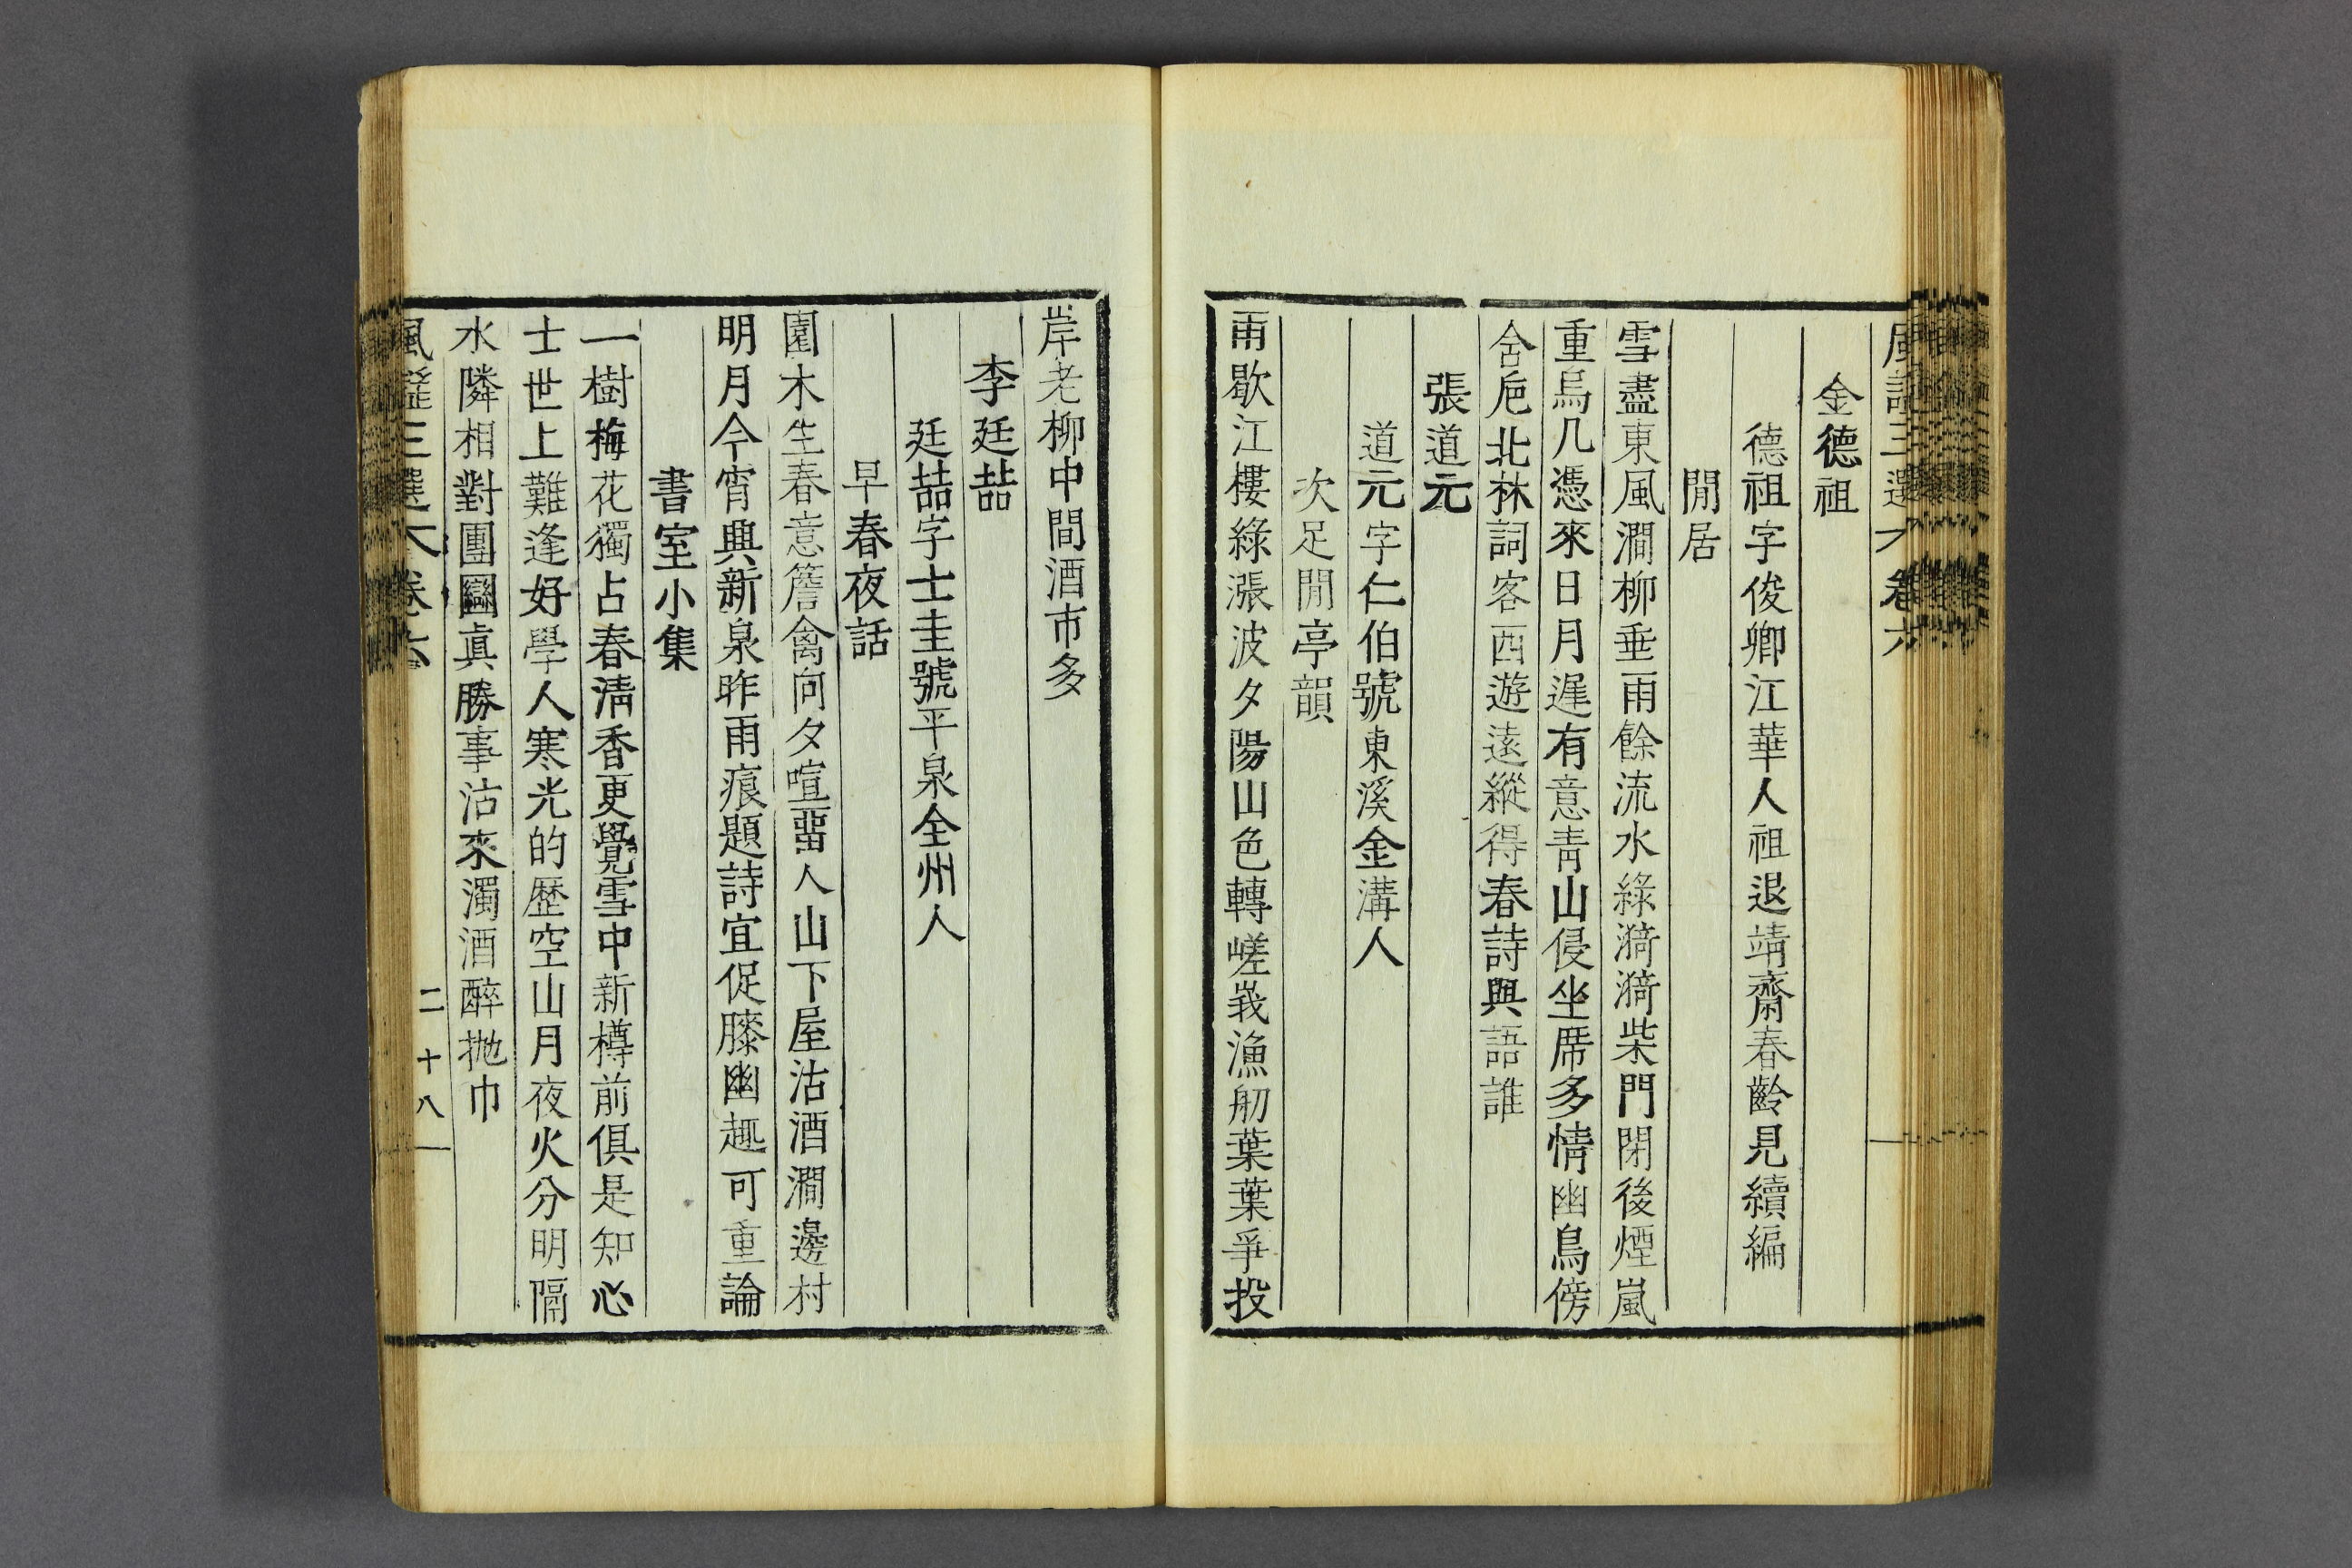 風謠三選 卷六
金德祖
德祖字俊卿江華人祖退靖齋春齡見續編
閒居
雪盡東風澗柳垂雨餘流水綠漪漪柴門閉後煙嵐
重烏几憑來日月遲有意靑山侵坐席多情幽鳥傍
舍巵北林詞客西遊遠縱得春詩與語誰
張道元
道元字仁伯號東溪金溝人
次足閒亭韻
雨歇江樓綠漲波夕陽山色轉嵯峩漁舠葉葉爭投
岸老柳中間酒市多
李廷喆
廷喆字士圭號平泉全州人
早春夜話
園木生春意簷禽向夕喧畱人山下屋沽酒澗邊村
明月今宵興新泉昨雨痕題詩宜促膝幽趣可重論
書室小集
一樹梅花獨占春淸香更覺雪中新樽前俱是知心
士世上難逢好學人寒光的歷空山月夜火分明隔
水隣相對團圞眞勝事沽來濁酒醉抛巾
風謠三選 卷六
二十八